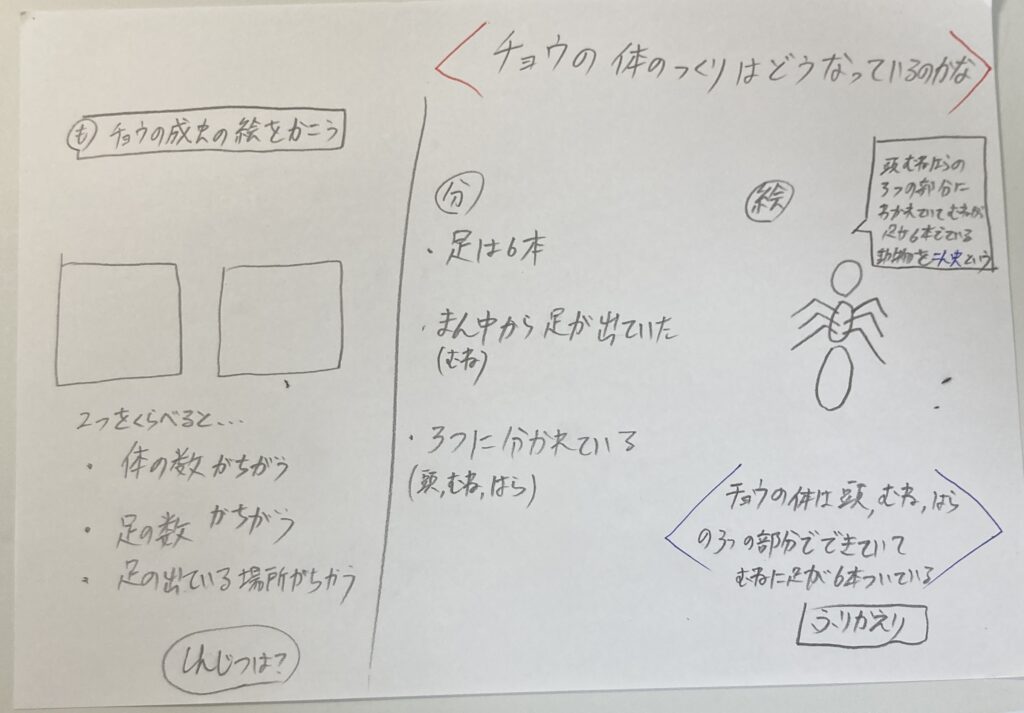 チョウの体のつくりはどうなっているのかな
も チョウの成虫の絵をかこう
2つをくらべると…
・体の数がちがう
・足の数がちがう
・足の出ている場所がちがう
しんじつは?
分
・足は6本
・まん中から足が出ていた
(むね)
・3つに分かれている
(頭,むね,はら)
絵
頭むねはらの
3つの部分に
分かれていてむねから
足が6本でている
動物をこん虫という
チョウの体は頭,むね,はら
の3つの部分でできていて
むねに足が6本ついている
ふりかえり